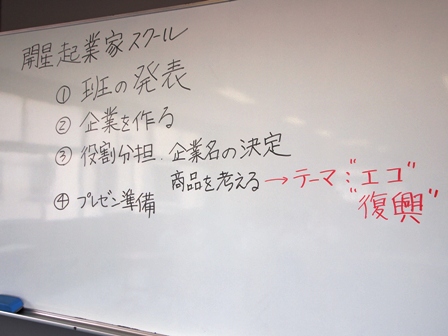 開星起業家スクール
① 班の発表
② 企業を作る
③ 役割分担．企業名の決定
商品を考える → テーマ："エコ"
"復興"
④ プレゼン準備